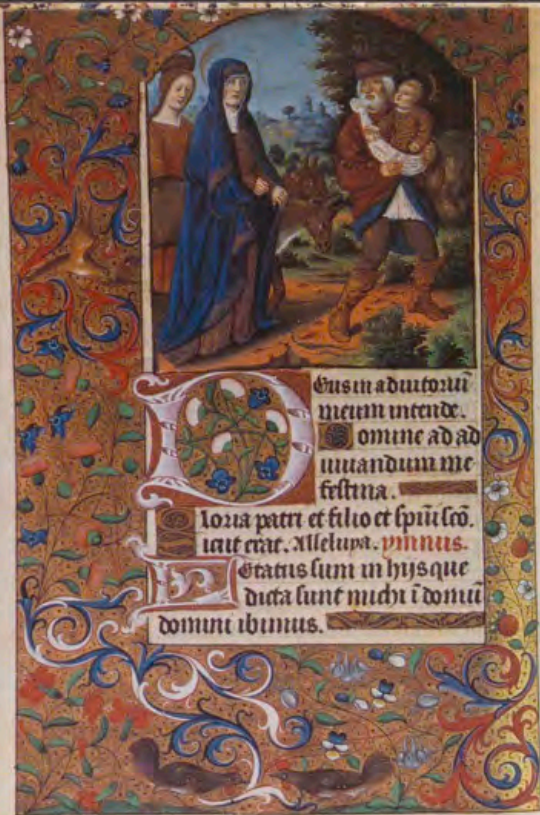 Deus in adiutoriū
meum intende.
Domine ad ad
iuuandum me
festina.
Gloria patri et filio et spiūi scō.
Sicut erat. Alleluya. ymnus.
Letatus sum in hijs que
dicta sunt michi ī domū
domini ibimus.